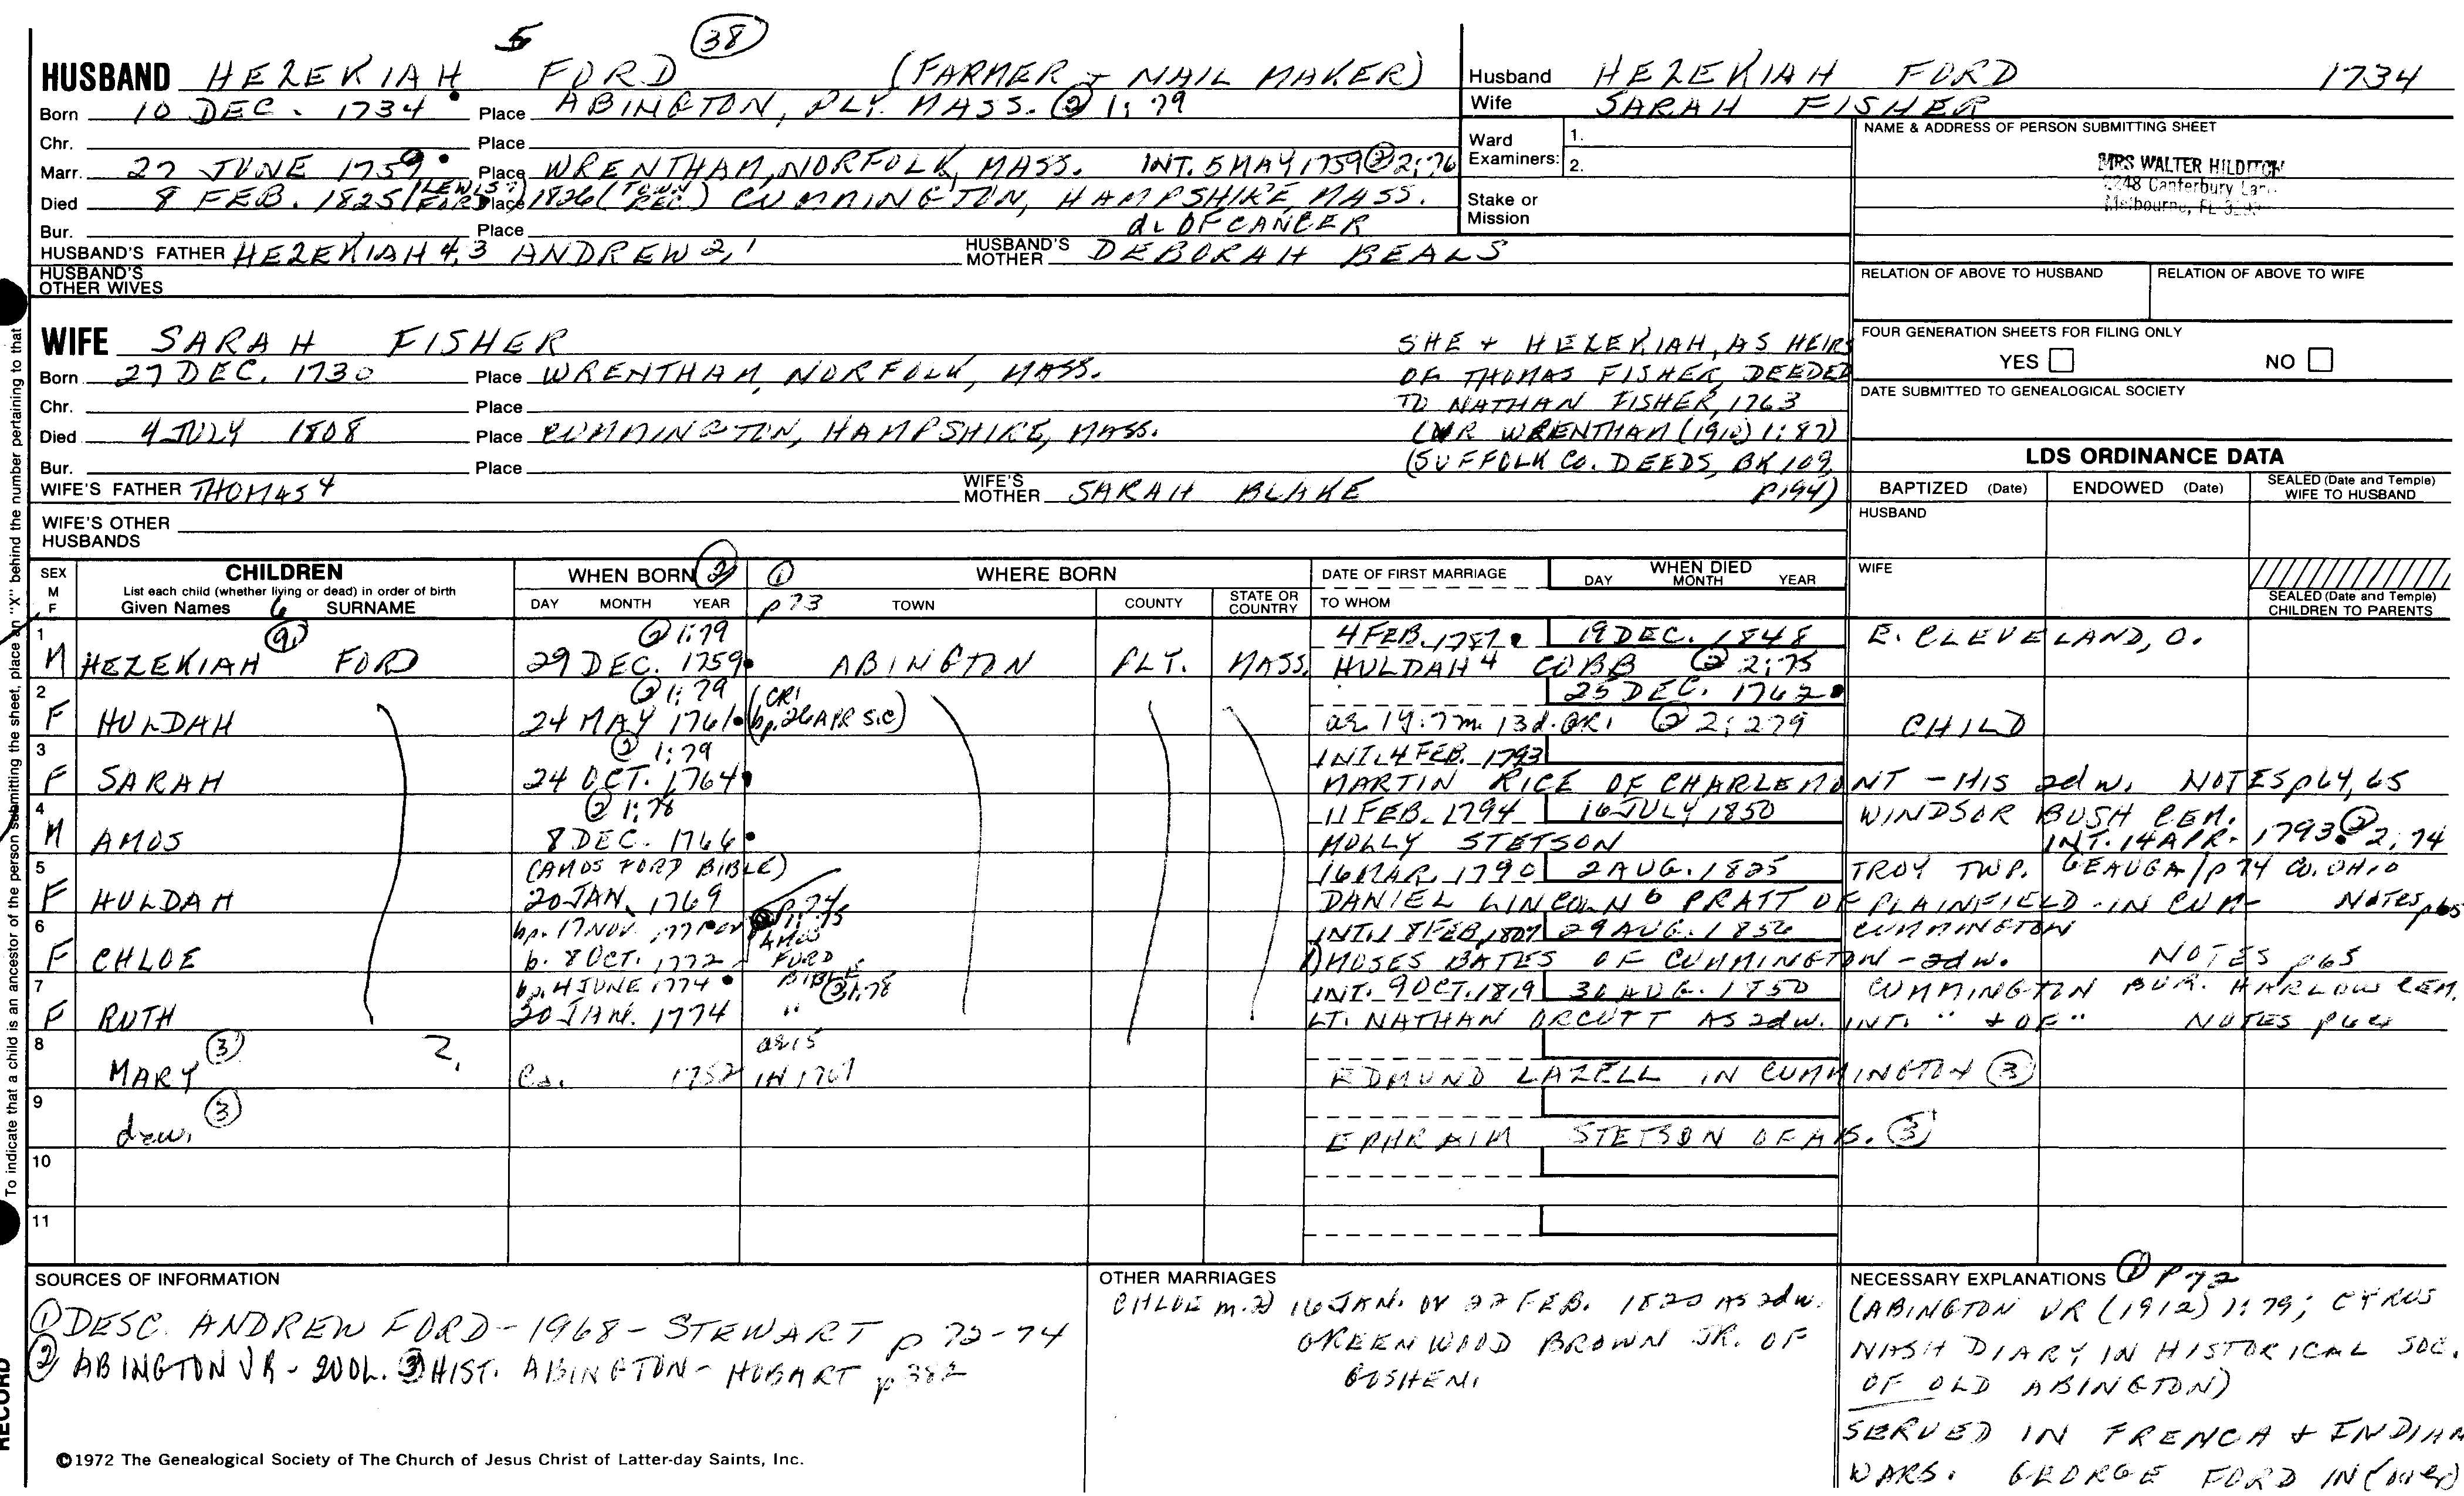 5 (38)
HUSBAND HEZEKIAH FORD (FARMER + NAIL MAKER)
Born 10 DEC. 1734 Place ABINGTON, PLY. MASS. (2) 1:79
Chr. Place
Marr. 27 JUNE 1759 Place WRENTHAM, NORFOLK, MASS. INT. 5 MAY 1759 (2) 2:76
Died 8 FEB. 1825 (LEWIS FORD) Place 1826 (TOWN REC.) CUMMINGTON, HAMPSHIRE, MASS.
Bur. Place d. OF CANCER
HUSBAND'S FATHER HEZEKIAH 4,3 ANDREW 2,1 HUSBAND'S MOTHER DEBORAH BEALS
HUSBAND'S OTHER WIVES
Husband HEZEKIAH FORD 1734
Wife SARAH FISHER
Ward Examiners: 1.
2.
Stake or Mission
NAME & ADDRESS OF PERSON SUBMITTING SHEET
MRS WALTER HILDITCH
Canterbury
Melbourne, FL
RELATION OF ABOVE TO HUSBAND RELATION OF ABOVE TO WIFE
FOUR GENERATION SHEETS FOR FILING ONLY
YES NO
DATE SUBMITTED TO GENEALOGICAL SOCIETY
WIFE SARAH FISHER
Born 27 DEC. 1730 Place WRENTHAM, NORFOLK, MASS.
Chr. Place
Died 4 JULY 1808 Place CUMMINGTON, HAMPSHIRE, MASS.
Bur. Place
WIFE'S FATHER THOMAS 4 WIFE'S MOTHER SARAH BLAKE
WIFE'S OTHER HUSBANDS
SHE + HEZEKIAH, AS HEIRS
OF THOMAS FISHER, DEEDED
TO NATHAN FISHER, 1763
(VR WRENTHAM (1910) 1:87)
(SUFFOLK CO. DEEDS, BK 109,
P194)
LDS ORDINANCE DATA
BAPTIZED (Date) ENDOWED (Date) SEALED (Date and Temple) WIFE TO HUSBAND
HUSBAND
WIFE
SEALED (Date and Temple) CHILDREN TO PARENTS
SEX M F
CHILDREN
List each child (whether living or dead) in order of birth
Given Names 6 SURNAME
WHEN BORN (2) DAY MONTH YEAR
(1) p73 WHERE BORN TOWN COUNTY STATE OR COUNTRY
DATE OF FIRST MARRIAGE TO WHOM
WHEN DIED DAY MONTH YEAR
1 (9.) (2) 1:79 4 FEB. 1787 19 DEC. 1848 E. CLEVELAND, O.
M HEZEKIAH FORD 29 DEC. 1759 ABINGTON PLY. MASS. HULDAH 4 COBB (2) 2:75
2 (2) 1:79 (CR1 25 DEC. 1762
F HULDAH 24 MAY 1761 bp. 26 APR sic) ae 1y. 7m. 13d. CR1 (2) 2:279 CHILD
3 (2) 1:79 INT. 4 FEB. 1793
F SARAH 24 OCT. 1764 MARTIN RICE OF CHARLEMONT - HIS 2d w. NOTES p64, 65
4 (2) 1:78 11 FEB. 1794 16 JULY 1850 WINDSOR BUSH CEM.
M AMOS 8 DEC. 1766 MOLLY STETSON INT. 14 APR. 1793 (2) 2:74
5 (AMOS FORD BIBLE) 16 MAR. 1790 2 AUG. 1825 TROY TWP. GEAUGA / p74 CO. OHIO
F HULDAH 20 JAN. 1769 p74 DANIEL LINCOLN 6 PRATT OF PLAINFIELD - IN CUM- NOTES p65
6 bp. 17 NOV. AMOS INT. 18 FEB. 1807 29 AUG. 1856 CUMMINGTON
F CHLOE b. 8 OCT. 1772 FORD 1) MOSES BATES OF CUMMINGTON - 2d w. NOTES p65
7 bp. 4 JUNE 1774 BIBLE (2) 1:78 INT. 9 OCT. 1819 30 AUG. 1850 CUMMINGTON BUR. HARLOW CEM.
F RUTH 20 JAN. 1774 " LT. NATHAN ORCUTT AS 2d w. INT. " + OF " NOTES p64
8 (3) ?, ae 15
MARY Ca. 1752 IN 1767 EDMUND LAZELL IN CUMMINGTON (3)
9 (3)
dau. EPHRAIM STETSON OF AB. (3)
10
11
SOURCES OF INFORMATION
(1) DESC. ANDREW FORD - 1968 - STEWART p 72-74
(2) ABINGTON VR - 2 VOL. (3) HIST. ABINGTON - HOBART p 382
OTHER MARRIAGES
CHLOE m. 2) 16 JAN. OR 22 FEB. 1820 AS 2d w.
GREENWOOD BROWN JR. OF
GOSHEN.
NECESSARY EXPLANATIONS (1) p72
(ABINGTON VR (1912) 1:79; CYRUS
NASH DIARY IN HISTORICAL SOC.
OF OLD ABINGTON)
SERVED IN FRENCH + INDIAN
WARS. GEORGE FORD IN
©1972 The Genealogical Society of The Church of Jesus Christ of Latter-day Saints, Inc.
To indicate that a child is an ancestor of the person submitting the sheet, place an "X" behind the number pertaining to that
RECORD